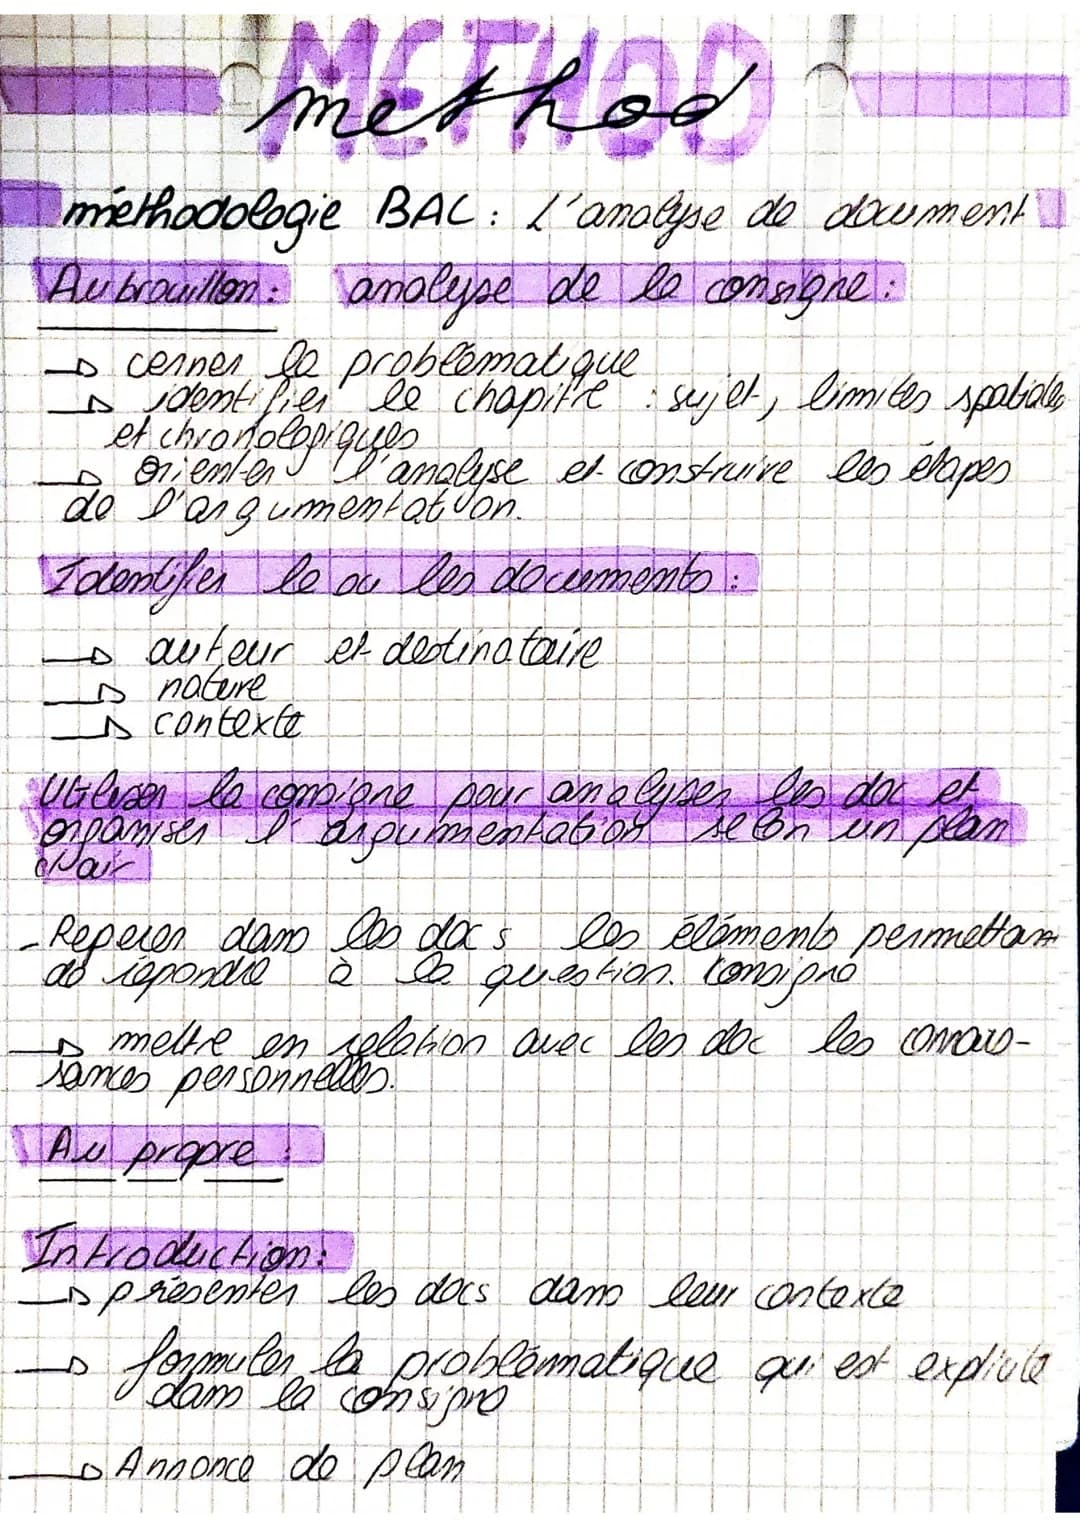 METHOD
method
méthodologie BAC : L'analyse de document
Au brouillon : analyse de la consigne :
→ cerner la problématique
→ identifier le chapitre : sujet, limites spatiales
et chronologiques
→ orienter l'analyse et construire les étapes
de l'argumentation.
Identifier le ou les documents :
→ auteur et destinataire
→ nature
→ contexte
Utiliser la consigne pour analyser les doc et
organiser l'argumentation selon un plan
clair
- Reperer dans les docs les éléments permettant
de répondre à la question. Consigne
→ mettre en relation avec les doc les connais-
sances personnelles.
Au propre :
Introduction :
→ présenter les docs dans leur contexte
→ formuler la problématique qui est explicite
dans la consigne
→ Annonce de plan